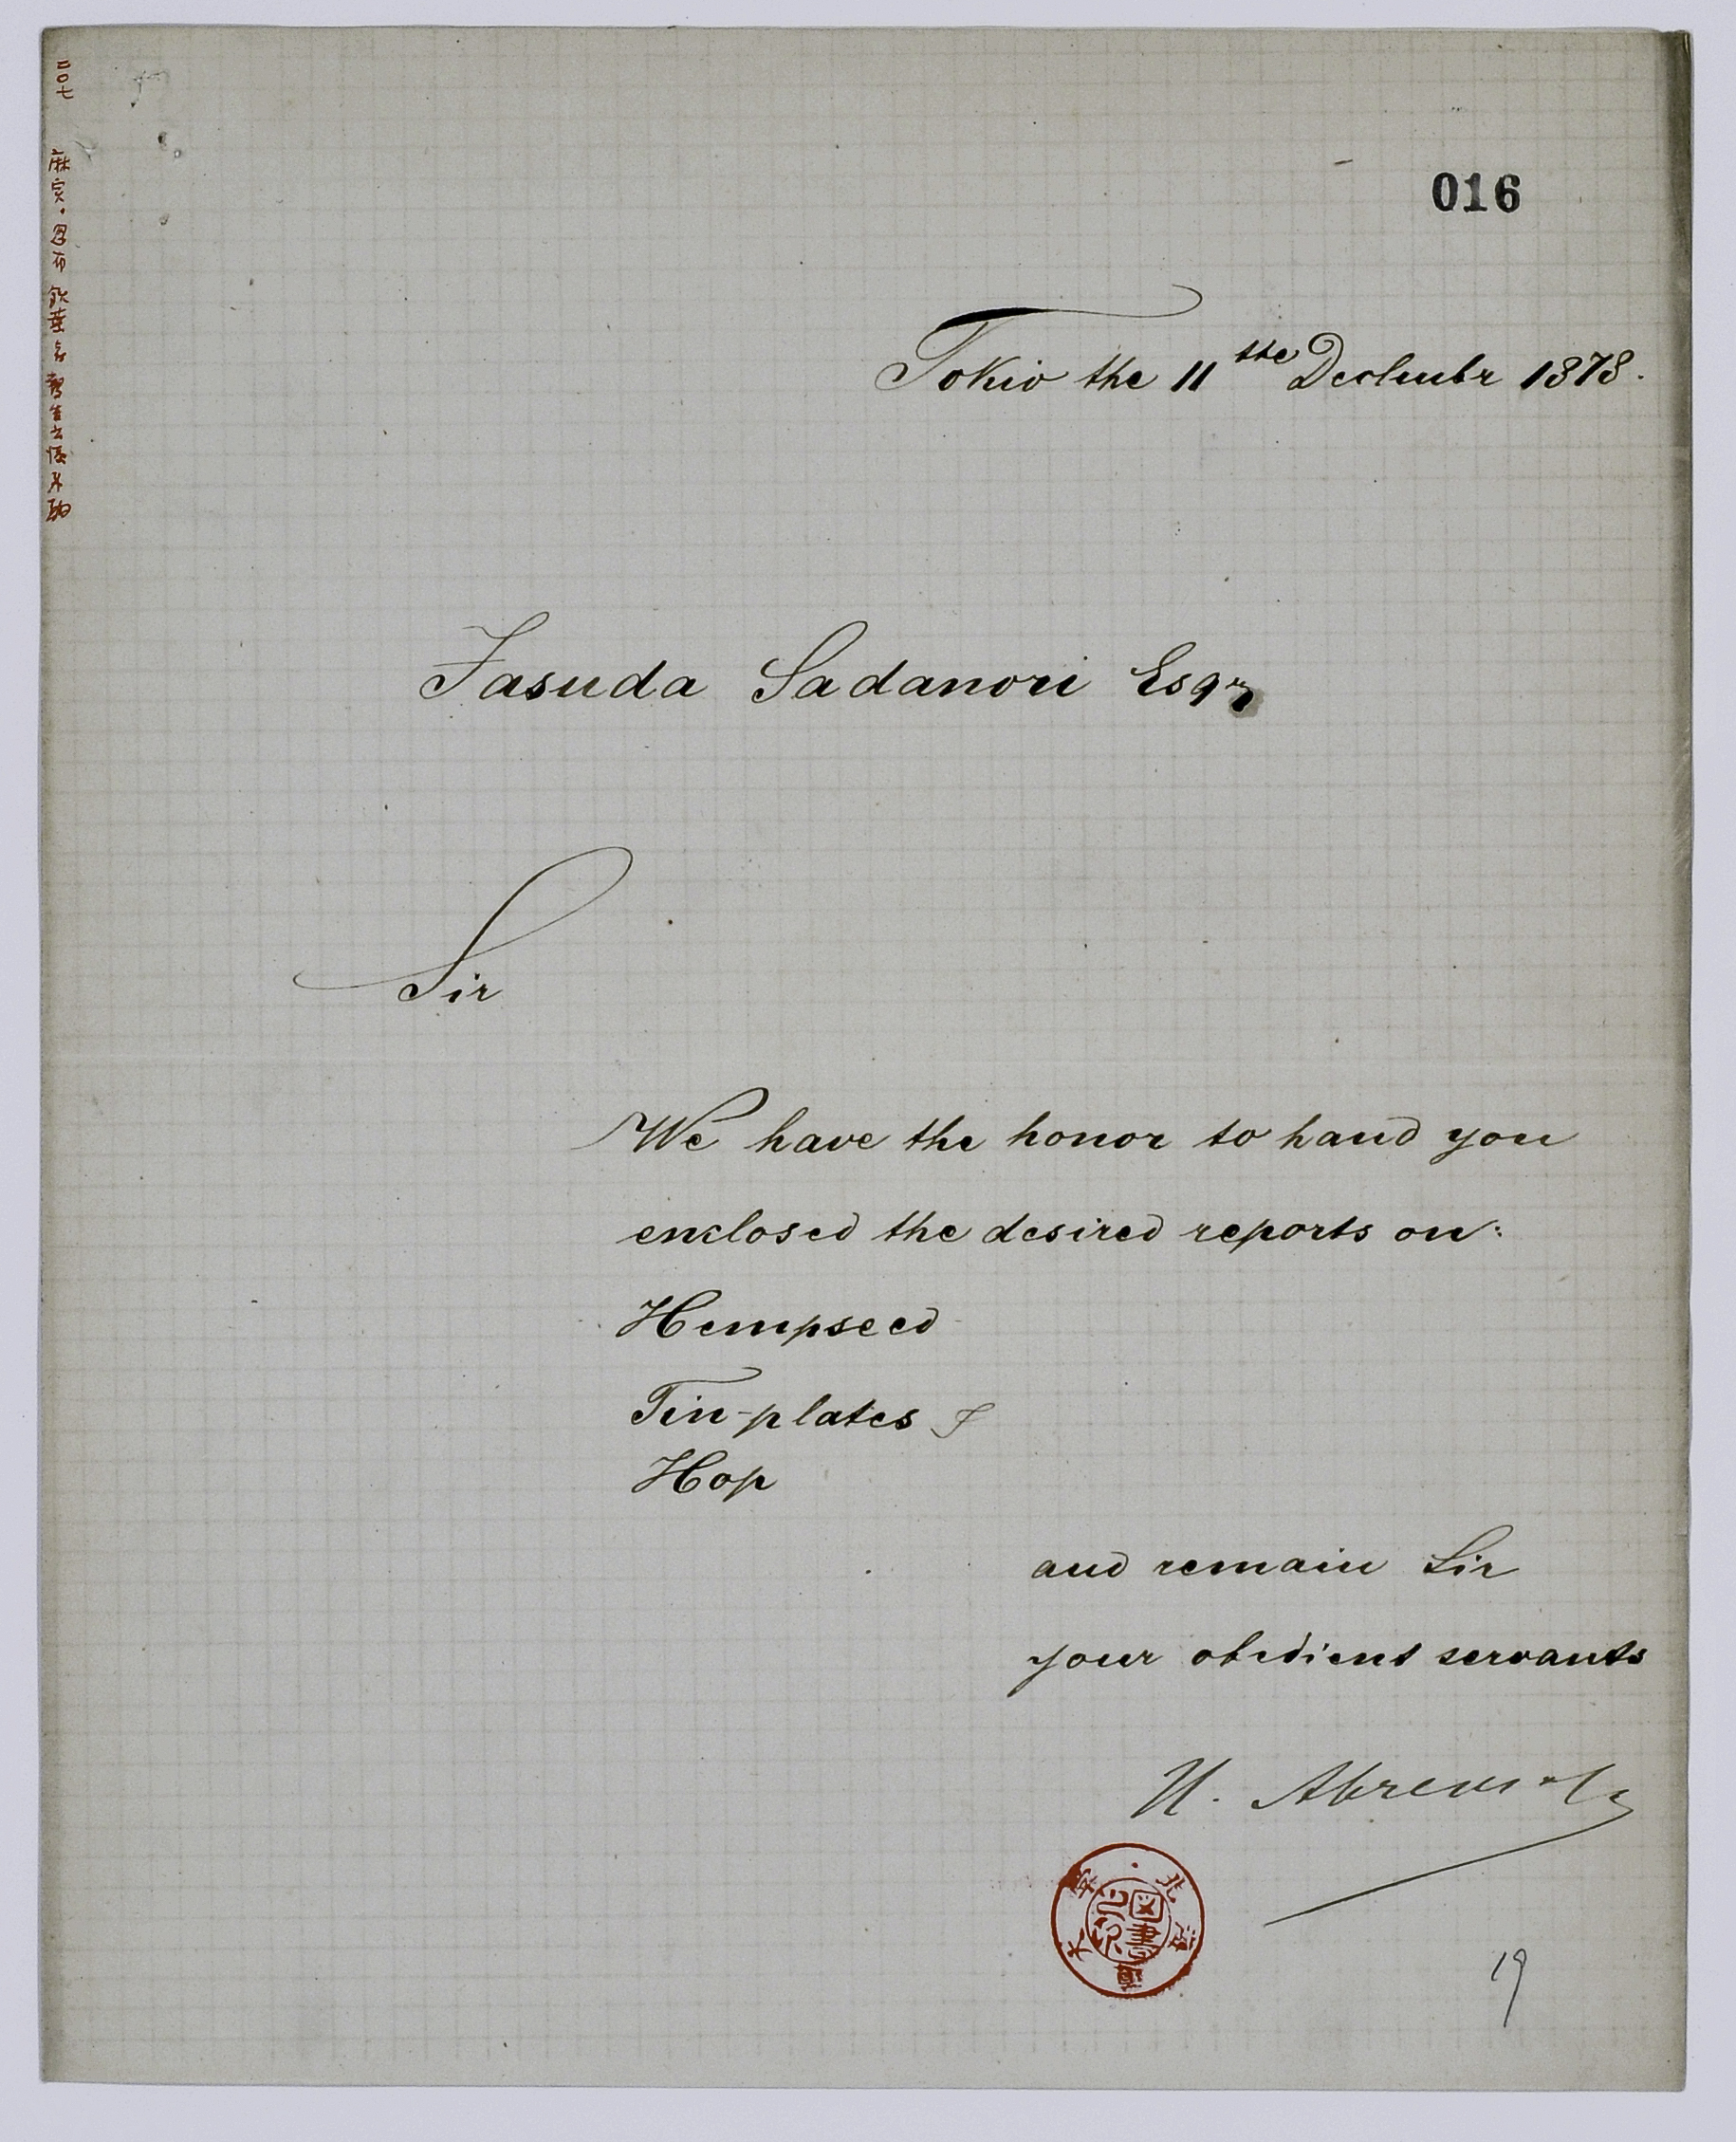 016
Tokio the 11 the Decbembr 1878.
Jasuda Sadanori Esqr
Sir
We have the honor to hand you
enclosed the desired reports on:
Hempseed
Tin-plates &
Hop
and remain Sir
your obedient servants
H. Ahrens & Co
19
二〇七
麻実・忽布
図書